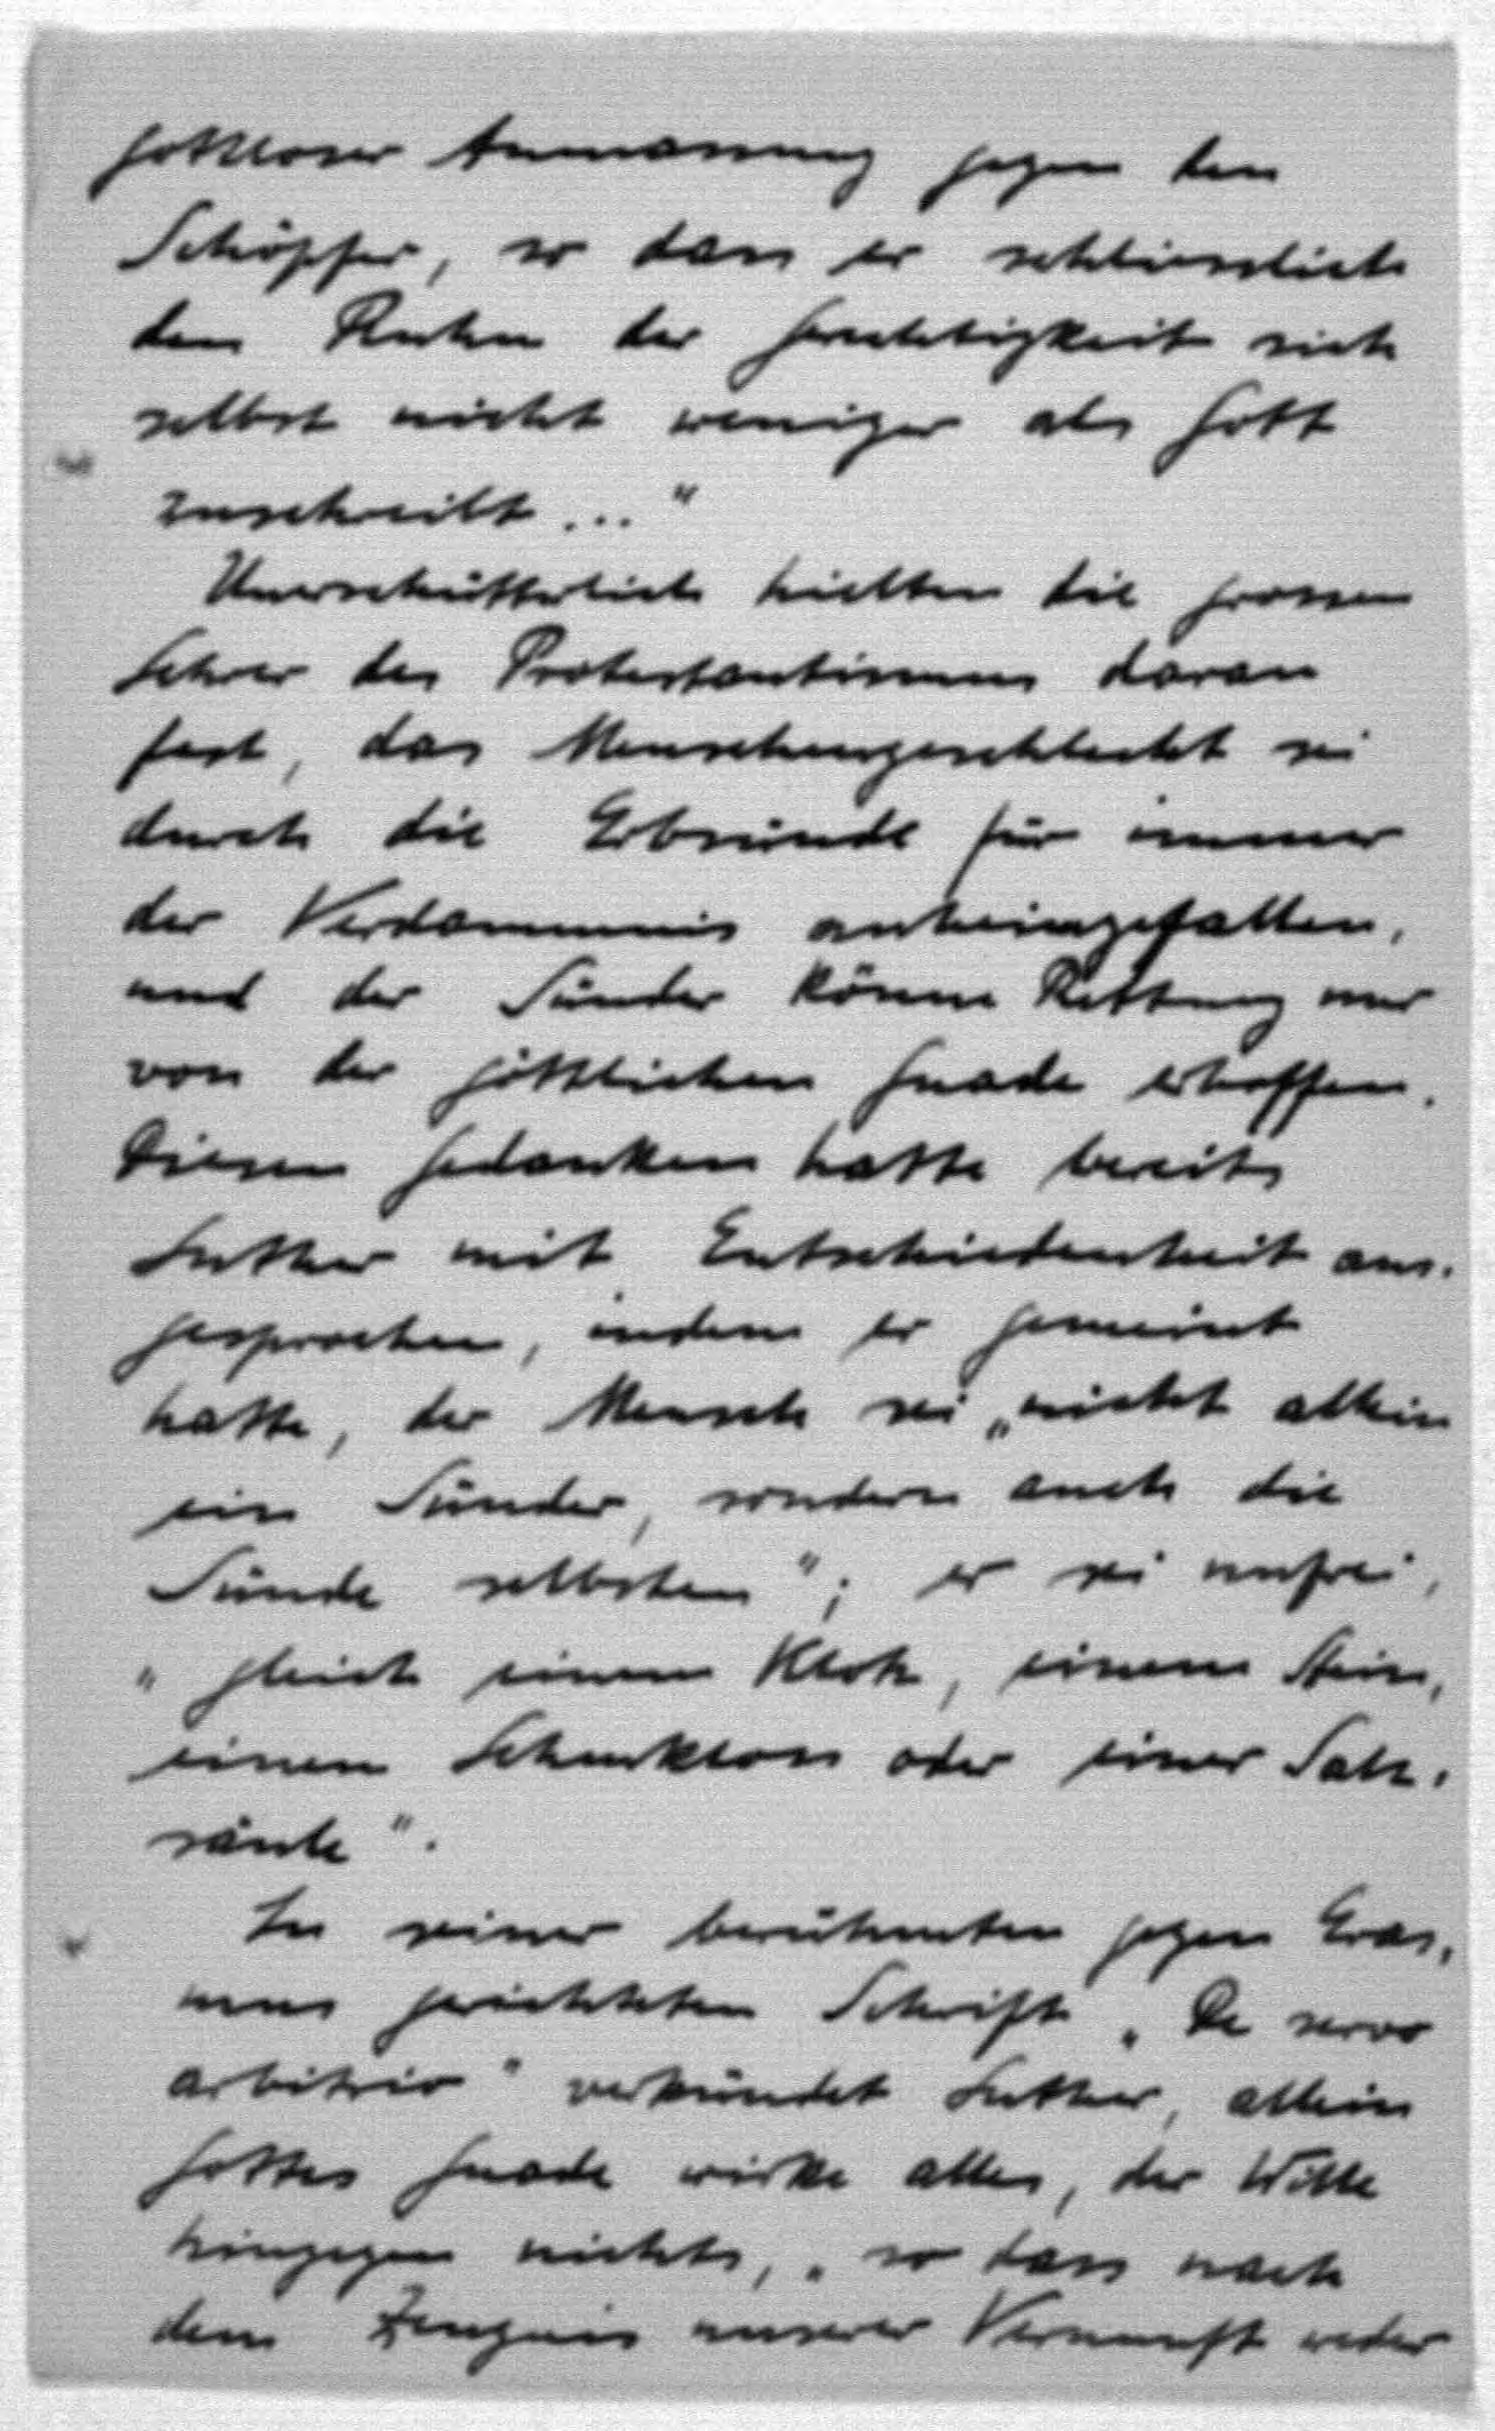 gottloser Anmassung gegen den
Schöpfer, so dass er schliesslich
den Ruhm der Gerechtigkeit sich
selbst nicht weniger als Gott
zuschreibt ..."
Unerschütterlich hielten die grossen
Lehrer des Protestantismus daran
fest, das Menschengeschlecht sei
durch die Erbsünde für immer
der Verdammnis anheimgefallen,
und der Sünder könne Rettung nur
von der göttlichen Gnade erhoffen.
Diesen Gedanken hatte bereits
Luther mit Entschiedenheit aus-
gesprochen, indem er gemeint
hatte, der Mensch sei „nicht allein
ein Sünder, sondern auch die
Sünde selbsten"; er sei unfrei,
„gleich einem Klotz, einem Stein,
einem Scherkloss oder einer Salz-
säule".
In seiner berühmten gegen Eras-
mus gerichteten Schrift „De servo
arbitrio" verkündet Luther, allein
Gottes Gnade wirke alles, der Wille
hingegen nichts, „so dass nach
dem Zeugnis unserer Vernunft weder